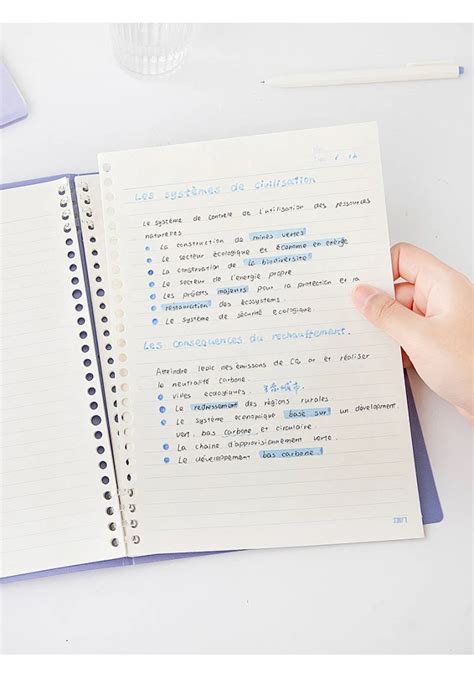 Les systèmes de civilisation
Le système de contrôle de l'utilisation des ressources
naturelles
La construction de mines vertes
Le secteur écologique et économe en énergie
La conservation de la biodiversité
Le secteur de l'énergie propre
Les projets majeurs pour la protection et la
restauration des écosystèmes.
Le système de sécurité écologique.
Les conséquences du rechauffement.
Atteindre le pic des émissons de CO2 et réaliser
le neutralité carbone.
Villes écologiques. 生态城市
Le redressement des régions rurales
Le système économique base sur un développement
vert, bas carbone et circulaire.
La chaîne d'approvisionnement verte.
Le développement bas carbone!